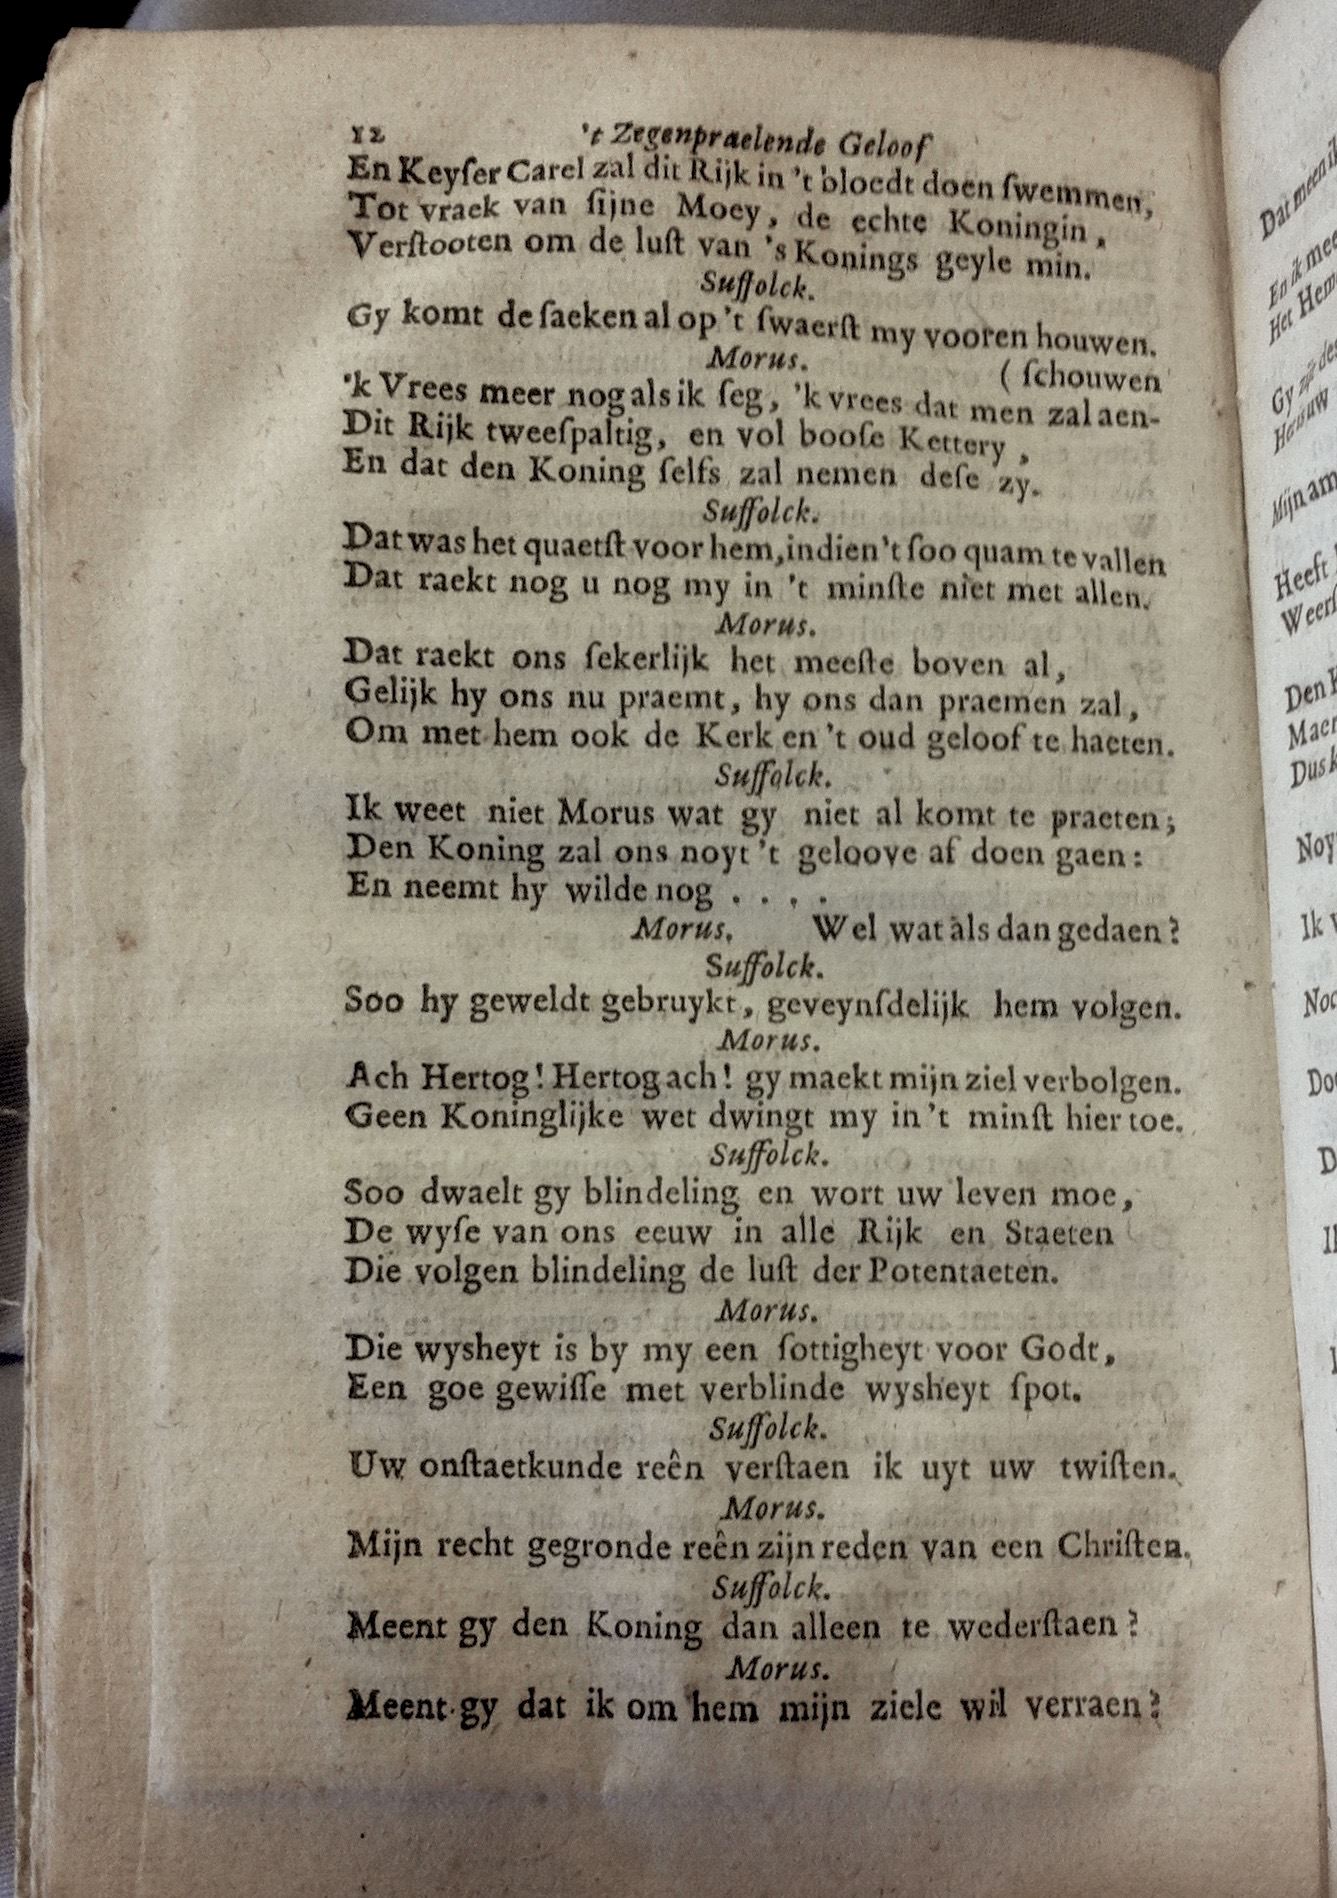 12 't Zegenpraelende Geloof
En Keyſer Carel zal dit Rijk in 't bloedt doen ſwemmen,
Tot vraek van ſijne Moey, de echte Koningin,
Verſtooten om de luſt van 's Konings geyle min.
Suffolck.
Gy komt de ſaeken al op 't ſwaerſt my vooren houwen.
Morus. (ſchouwen
'k Vrees meer nog als ik ſeg, 'k vrees dat men zal aen-
Dit Rijk tweeſpaltig, en vol booſe Kettery,
En dat den Koning ſelfs zal nemen deſe zy.
Suffolck.
Dat was het quaetſt voor hem, indien 't ſoo quam te vallen
Dat raekt nog u nog my in 't minſte niet met allen.
Morus.
Dat raekt ons ſekerlijk het meeſte boven al,
Gelijk hy ons nu praemt, hy ons dan praemen zal,
Om met hem ook de Kerk en 't oud geloof te haeten.
Suffolck.
Ik weet niet Morus wat gy niet al komt te praeten;
Den Koning zal ons noyt 't geloove af doen gaen:
En neemt hy wilde nog . . . .
Morus. Wel wat als dan gedaen?
Suffolck.
Soo hy geweldt gebruykt, geveynſdelijk hem volgen.
Morus.
Ach Hertog! Hertog ach! gy maekt mijn ziel verbolgen.
Geen Koninglijke wet dwingt my in 't minſt hier toe.
Suffolck.
Soo dwaelt gy blindeling en wort uw leven moe,
De wyſe van ons eeuw in alle Rijk en Staeten
Die volgen blindeling de luſt der Potentaeten.
Morus.
Die wysheyt is by my een ſottigheyt voor Godt,
Een goe gewiſſe met verblinde wysheyt ſpot.
Suffolck.
Uw onſtaetkunde reên verſtaen ik uyt uw twiſten.
Morus.
Mijn recht gegronde reên zijn reden van een Chriſten.
Suffolck.
Meent gy den Koning dan alleen te wederſtaen?
Morus.
Meent gy dat ik om hem mijn ziele wil verraen?
Dat meen
En ik
Het
Gy zijt
Mijn
Heeft
Den
Maer
Dus
Ik